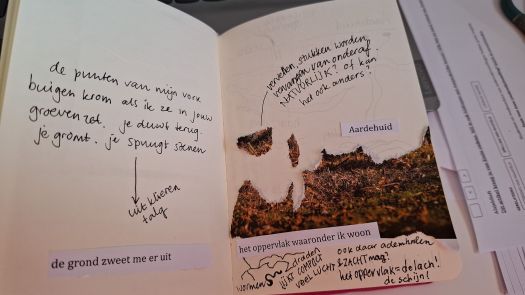 de punten van mijn vork
buigen krom als ik ze in jouw
groeven zet. je duwt terug.
je gromt. je spuugt stenen
uit klieren
talg
de grond zweet me er uit
vervellen, stukken worden
vervangen van onderaf.
NATUURLIJK? of kan
het ook anders?
Aardehuid
het oppervlak waaronder ik woon
wormen
draden
LIJKT COMPOST
VEEL LUCHT
ook daar ademhalen
& ZACHT mag?
het oppervlak = de lach!
de schijn!